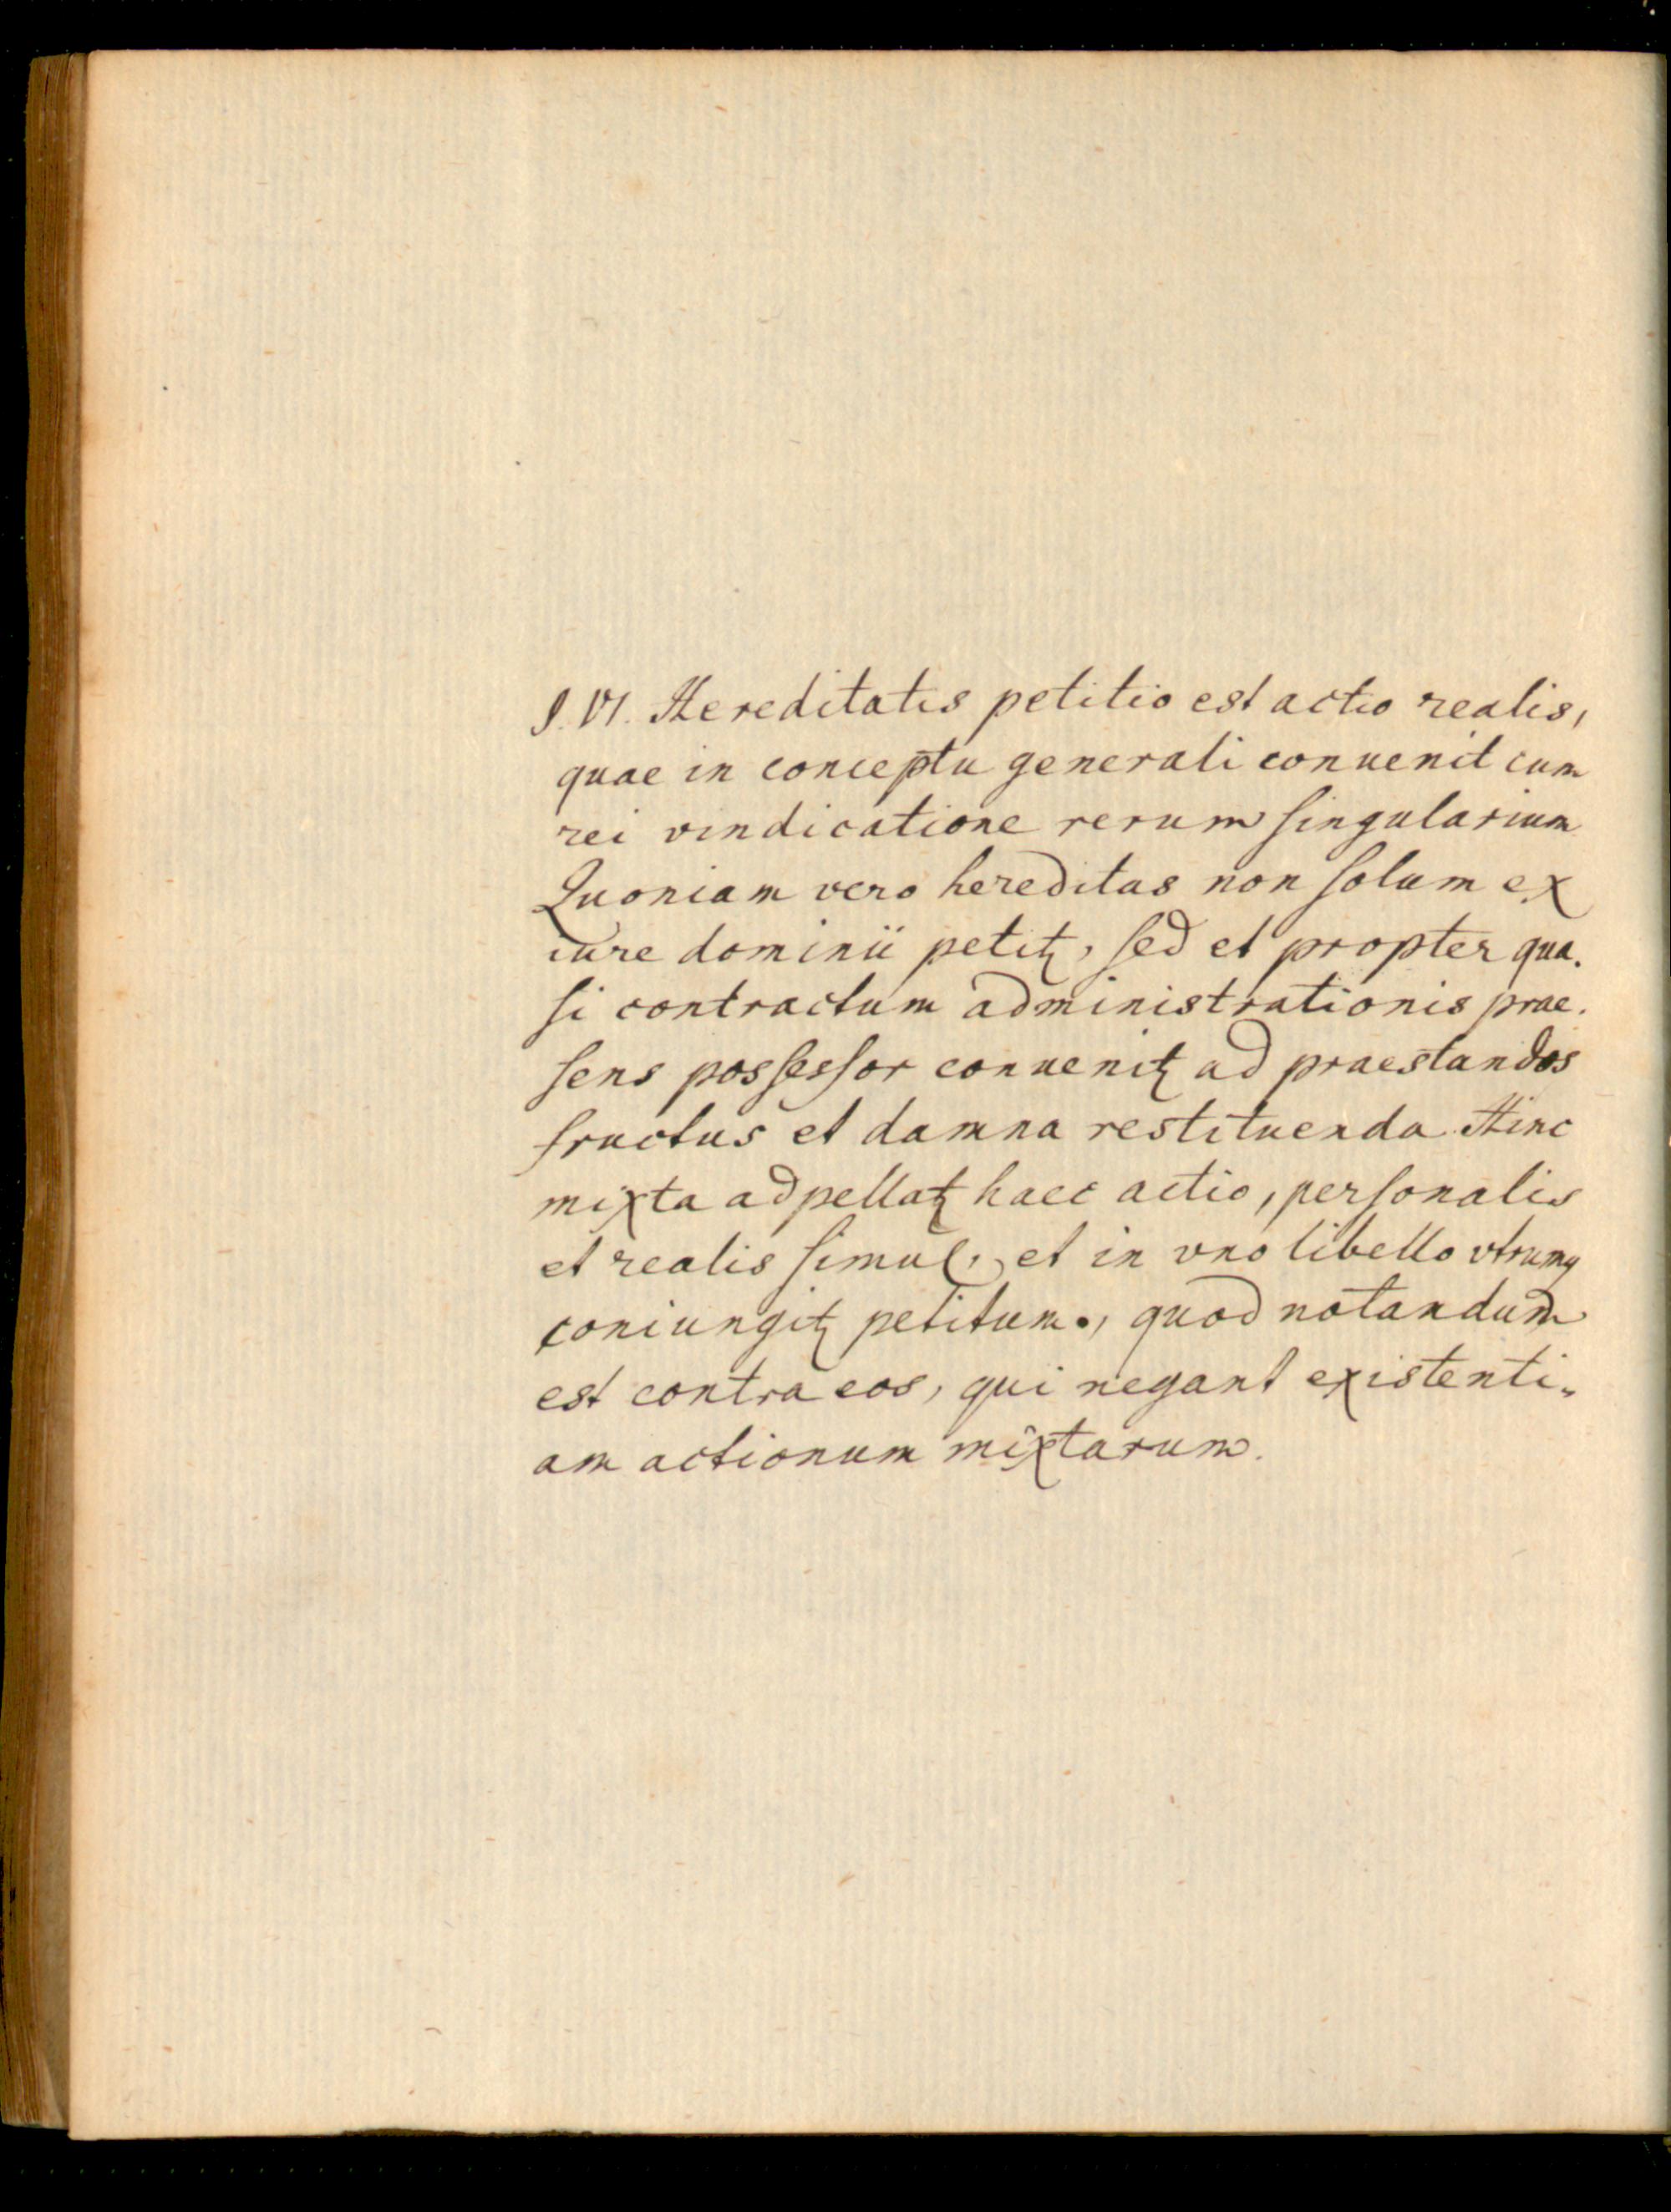 §. VI. Hereditatis petitio est actio realis,
quae in conceptu generali conuenit cum
rei vindicatione rerum ſingularium
Quoniam vero hereditas non ſolum ex
iure dominii petitꝛ, ſed et propter qua-
ſi contractum administrationis prae-
ſens posſesſor conuenitꝛ ad praestandos
fructus et damna restituenda Hinc
mixta adpellatꝛ haec actio, perſonalis
et realis ſimul, et in vno libello vtrumq
coniungitꝛ petitum., quod notandum
est contra eos, qui negant existenti-
am actionum mixtarum.